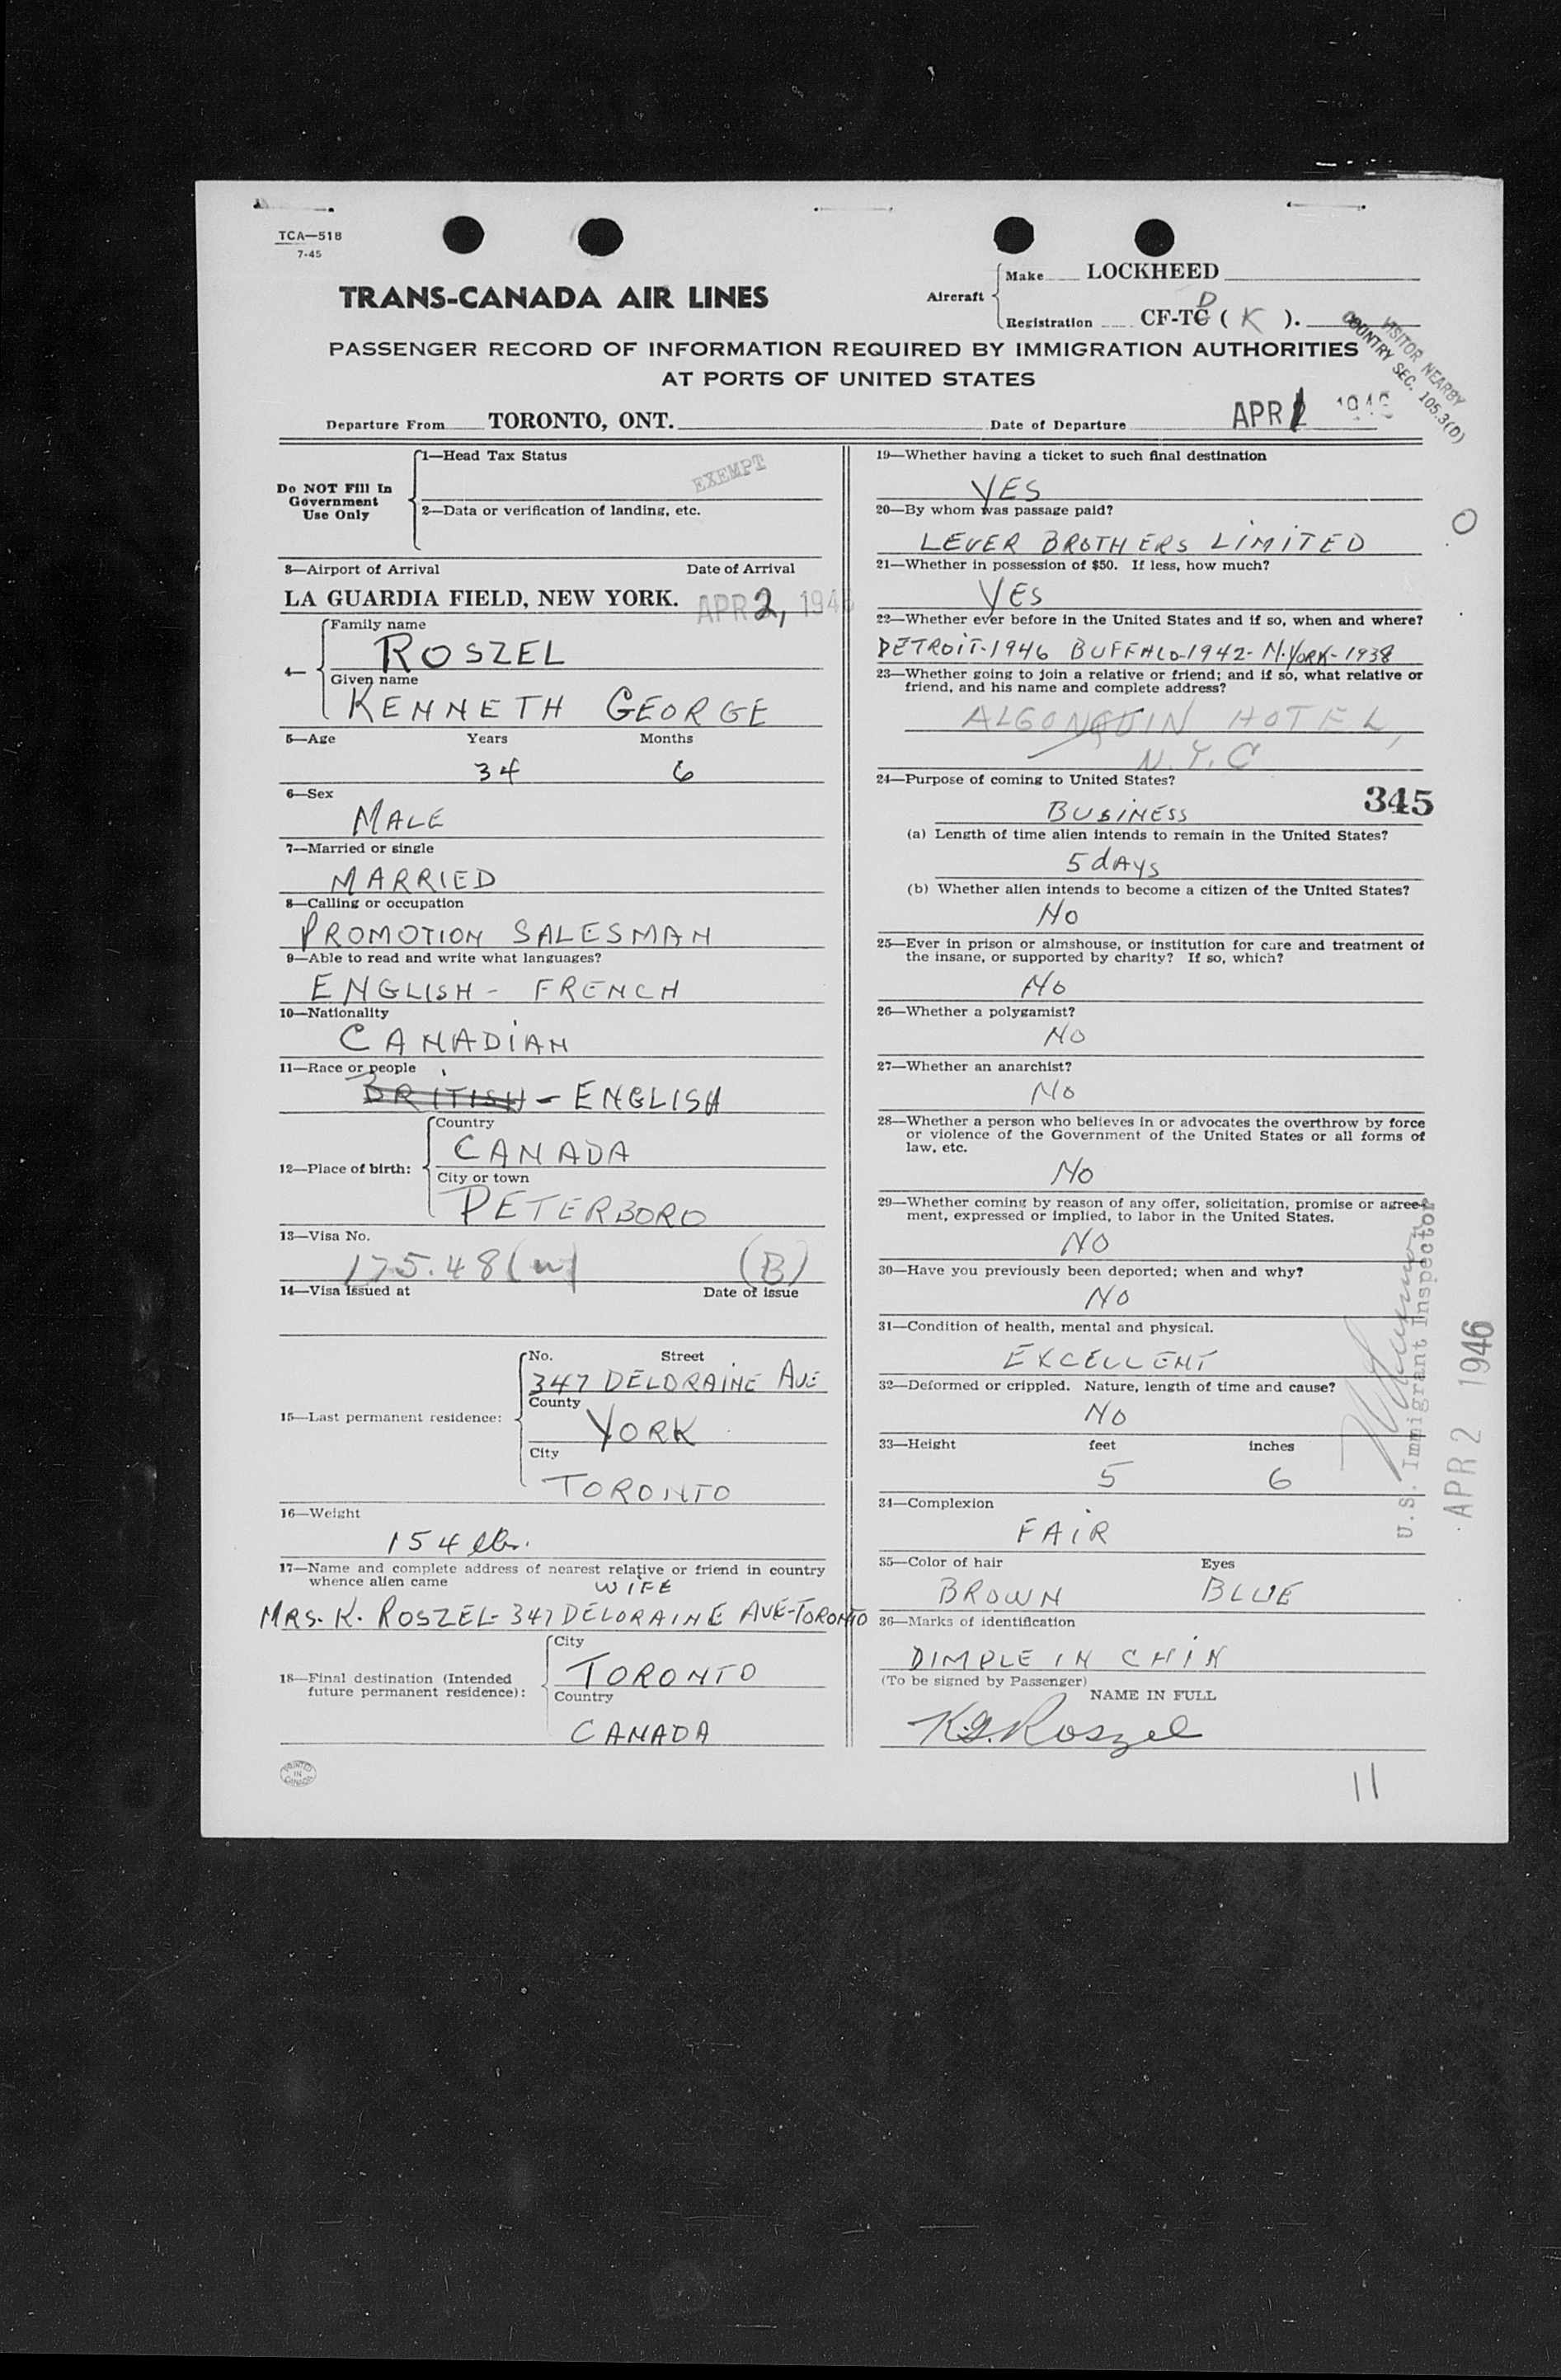 TCA—518
7-45
TRANS-CANADA AIR LINES
Aircraft
Make LOCKHEED
Registration CF-TC D ( K ).
VISITOR NEARBY
COUNTRY SEC. 105.3(D)
PASSENGER RECORD OF INFORMATION REQUIRED BY IMMIGRATION AUTHORITIES
AT PORTS OF UNITED STATES
Departure From TORONTO, ONT. Date of Departure APR 1946
Do NOT Fill In
Government
Use Only
1—Head Tax Status
EXEMPT
2—Data or verification of landing, etc.
3—Airport of Arrival Date of Arrival
LA GUARDIA FIELD, NEW YORK. APR 2, 194
4—
Family name
ROSZEL
Given name
KENNETH GEORGE
5—Age Years Months
34 6
6—Sex
MALE
7—Married or single
MARRIED
8—Calling or occupation
PROMOTION SALESMAN
9—Able to read and write what languages?
ENGLISH - FRENCH
10—Nationality
CANADIAN
11—Race or people
BRITISH - ENGLISH
12—Place of birth:
Country
CANADA
City or town
PETERBORO
13—Visa No.
175.48 (B)
14—Visa issued at Date of issue
15—Last permanent residence:
No. Street
347 DELORAINE AVE
County
YORK
City
TORONTO
16—Weight
154 lbs.
17—Name and complete address of nearest relative or friend in country
whence alien came
WIFE
MRS. K. ROSZEL - 347 DELORAINE AVE - TORONTO
18—Final destination (Intended
future permanent residence):
City
TORONTO
Country
CANADA
PRINTED
IN
CANADA
19—Whether having a ticket to such final destination
YES
20—By whom was passage paid?
O
LEVER BROTHERS LIMITED
21—Whether in possession of $50. If less, how much?
YES
22—Whether ever before in the United States and if so, when and where?
DETROIT-1946 BUFFALO-1942- N.YORK-1938
23—Whether going to join a relative or friend; and if so, what relative or
friend, and his name and complete address?
ALGONQUIN HOTEL,
N.Y.C
24—Purpose of coming to United States?
345
BUSINESS
(a) Length of time alien intends to remain in the United States?
5 days
(b) Whether alien intends to become a citizen of the United States?
NO
25—Ever in prison or almshouse, or institution for care and treatment of
the insane, or supported by charity? If so, which?
NO
26—Whether a polygamist?
NO
27—Whether an anarchist?
NO
28—Whether a person who believes in or advocates the overthrow by force
or violence of the Government of the United States or all forms of
law, etc.
NO
29—Whether coming by reason of any offer, solicitation, promise or agree-
ment, expressed or implied, to labor in the United States.
NO
30—Have you previously been deported; when and why?
NO
31—Condition of health, mental and physical.
EXCELLENT
32—Deformed or crippled. Nature, length of time and cause?
NO
33—Height feet inches
5 6
34—Complexion
FAIR
35—Color of hair Eyes
BROWN BLUE
36—Marks of identification
DIMPLE IN CHIN
(To be signed by Passenger)
NAME IN FULL
K.G. Roszel
U.S. Immigrant Inspector
APR 2 1946
11